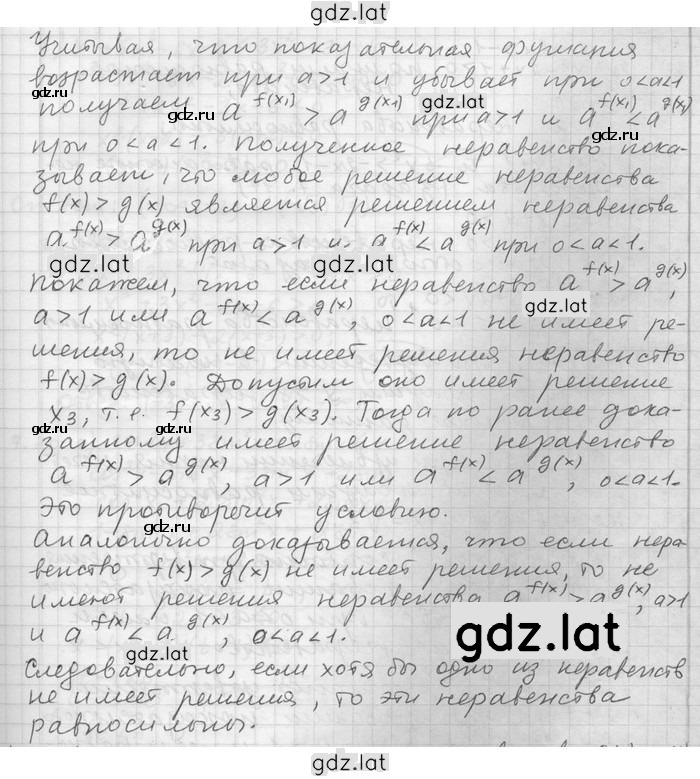 gdz.lat
Учитывая, что показательная функция
возрастает при a>1 и убывает при 0<a<1
gdz.lat gdz.lat gdz.lat
получаем a^f(x₁) > a^g(x₁) при a>1 и a^f(x₁) < a^g(x₁)
при 0<a<1. Полученное неравенство пока-
зывает, что любое решение неравенства
f(x) > g(x) является решением неравенства
gdz.lat
a^f(x) > a^g(x) при a>1 и a^f(x) < a^g(x) при 0<a<1.
gdz.lat gdz.lat
Покажем, что если неравенство a^f(x) > a^g(x),
gdz.lat
a>1 или a^f(x) < a^g(x), 0<a<1 не имеет ре-
шения, то не имеет решения неравенство
f(x) > g(x). Допустим оно имеет решение
x₃, т.е. f(x₃) > g(x₃). Тогда по ранее дока-
gdz.lat
занному имеет решение неравенство
a^f(x) > a^g(x), a>1 или a^f(x) < a^g(x), 0<a<1.
gdz.lat gdz.lat
Это противоречит условию.
gdz.lat
Аналогично доказывается, что если нера-
венство f(x) > g(x) не имеет решения, то не
имеют решения неравенства a^f(x) > a^g(x), a>1
и a^f(x) < a^g(x), 0<a<1.
gdz.lat
gdz.lat
Следовательно, если хотя бы одно из неравенств
не имеет решения, то эти неравенства
равносильны.
gdz.lat
gdz.lat